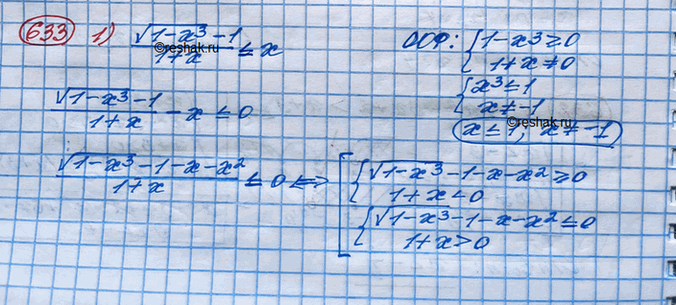 633 1) (√(1-x³) - 1)/(1+x) ≤ x ООФ: { 1-x³ ≥ 0
1+x ≠ 0
{ x³ ≤ 1
x ≠ -1
(√(1-x³) - 1)/(1+x) - x ≤ 0
x ≤ 1, x ≠ -1
(√(1-x³) - 1 - x - x²)/(1+x) ≤ 0 <=> [ { √(1-x³) - 1 - x - x² ≥ 0
1+x < 0
{ √(1-x³) - 1 - x - x² ≤ 0
1+x > 0
©reshak.ru
©reshak.ru